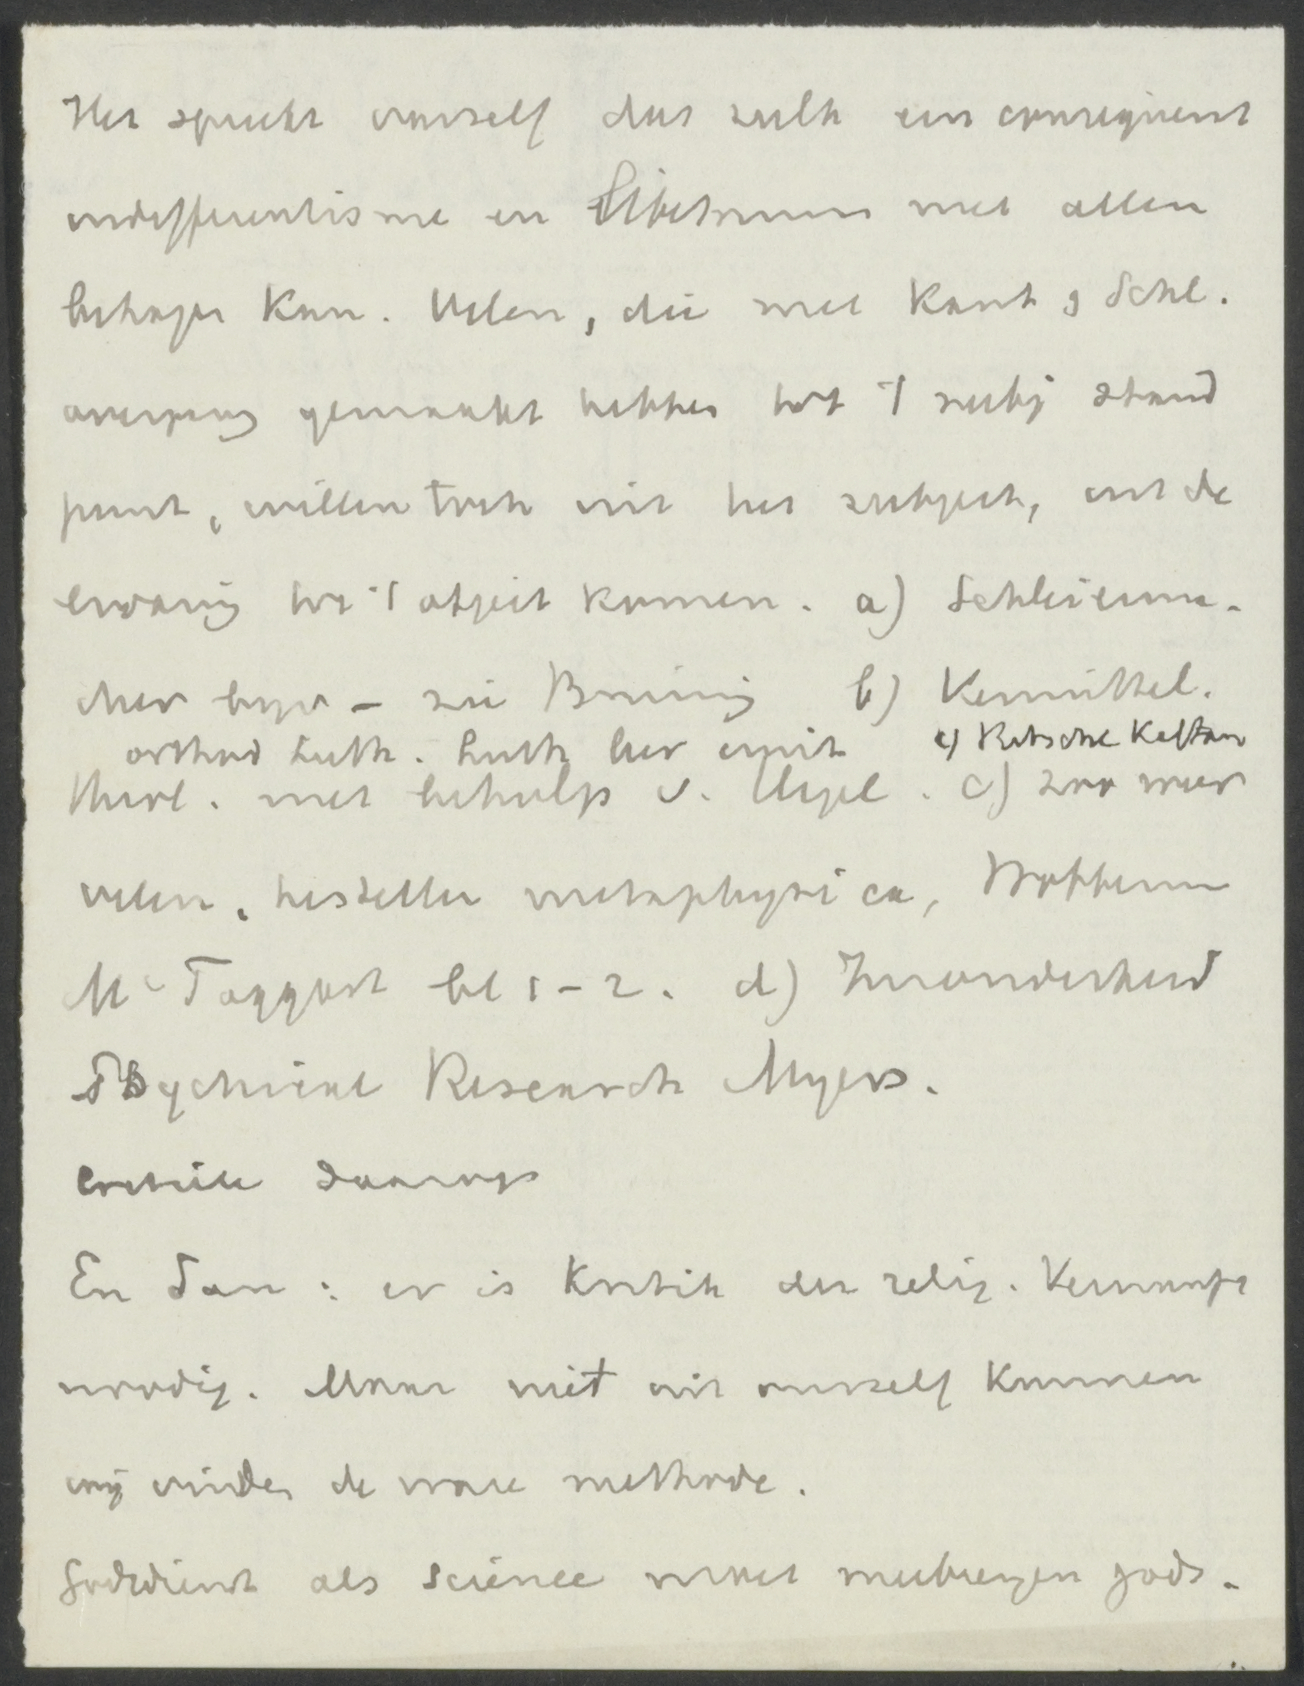 Het spreekt vanzelf dat zulk een consequent
indifferentisme en niet allen
behagen kan. Velen, die met Kant & Schl.
overgang gemaakt hebben tot 't subj stand
punt, willen toch uit het subject, uit de
ervaring tot 't object komen. a) Schleierma-
cher zie Bruining b) Vermittel.
orthod Luth. Luth leer c) Ritschl Kaftan
Theol. met behulp v. Hegel. c) zoo weer
velen, herstellen metaphysica, Wobbermin
Mc Taggart bl 1-2. d) Inzonderheid
Psychical Research Myers.
Critiek daarop
En dan: er is Kritik der relig. Vernunft
noodig. Maar niet uit onszelf kunnen
wij vinden de ware methode.
Godsdienst als science moet meebrengen gods-